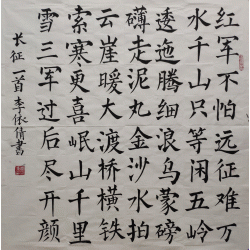 红军不怕远征难万
水千山只等闲五岭
逶迤腾细浪乌蒙磅
礴走泥丸金沙水拍
云崖暖大渡桥横铁
索寒更喜岷山千里
雪三军过后尽开颜
长征一首李依倩書